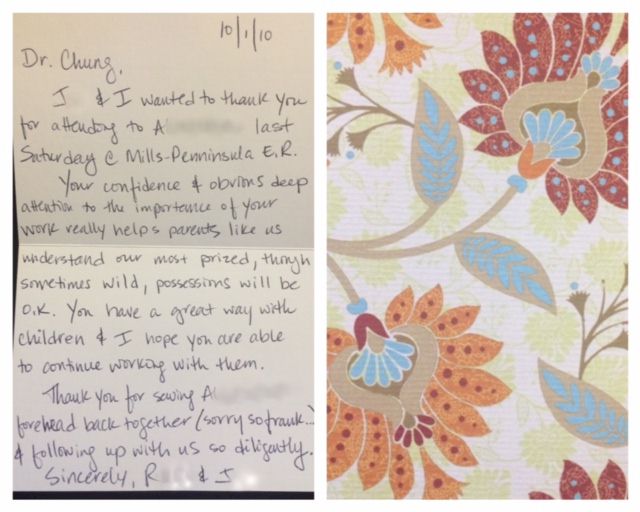 10/1/10
Dr. Chung,
J & I wanted to thank you
for attending to A last
Saturday @ Mills-Penninsula E.R.
Your confidence & obvious deep
attention to the importance of your
work really helps parents like us
understand our most prized, though
sometimes wild, possessions will be
O.K. You have a great way with
children & I hope you are able
to continue working with them.
Thank you for sewing A
forehead back together (sorry so frank...)
& following up with us so diligently.
Sincerely, R & J